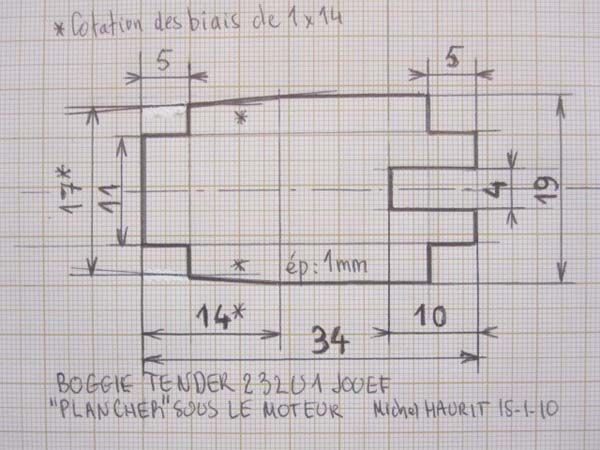 * Cotation des biais de 1 x 14
5
5
17*
11
4
19
ép: 1mm
*
*
14*
10
34
BOGGIE TENDER 232U1 JOUEF
"PLANCHER" SOUS LE MOTEUR Michel HAURIT 15-1-10